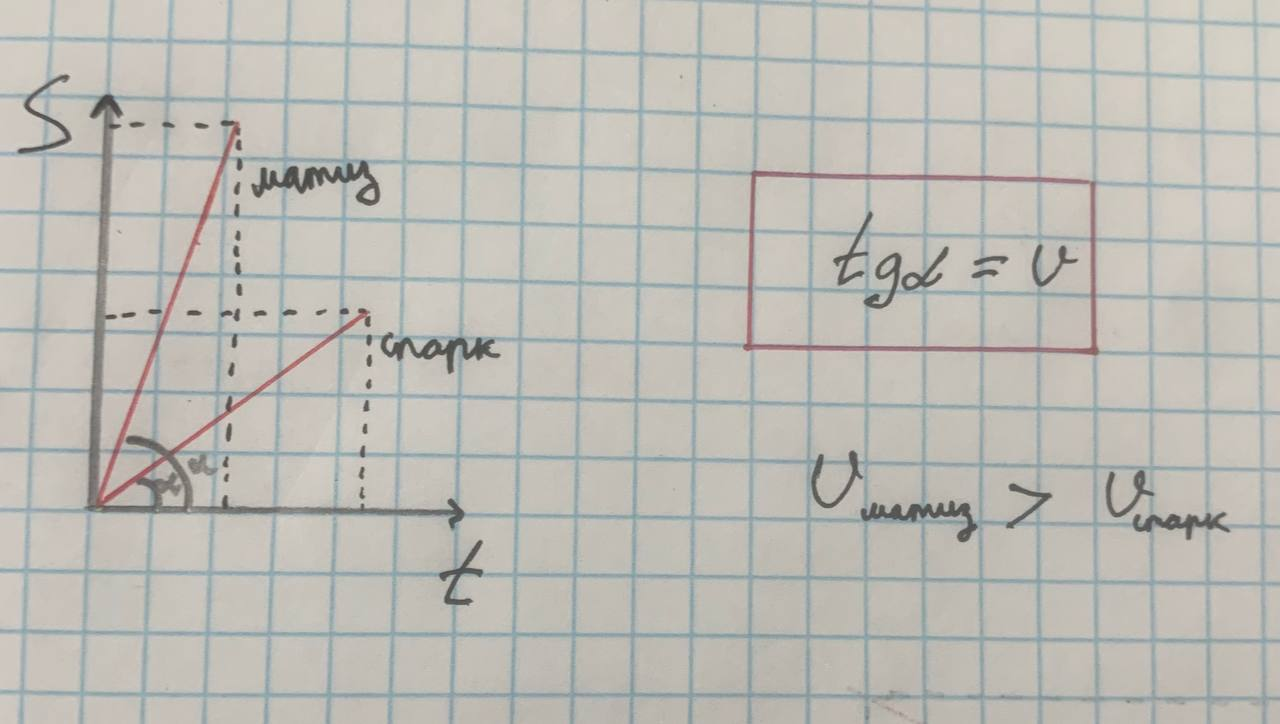 S
матиз
спарк
α
α
t
tgα = v
v матиз > v спарк